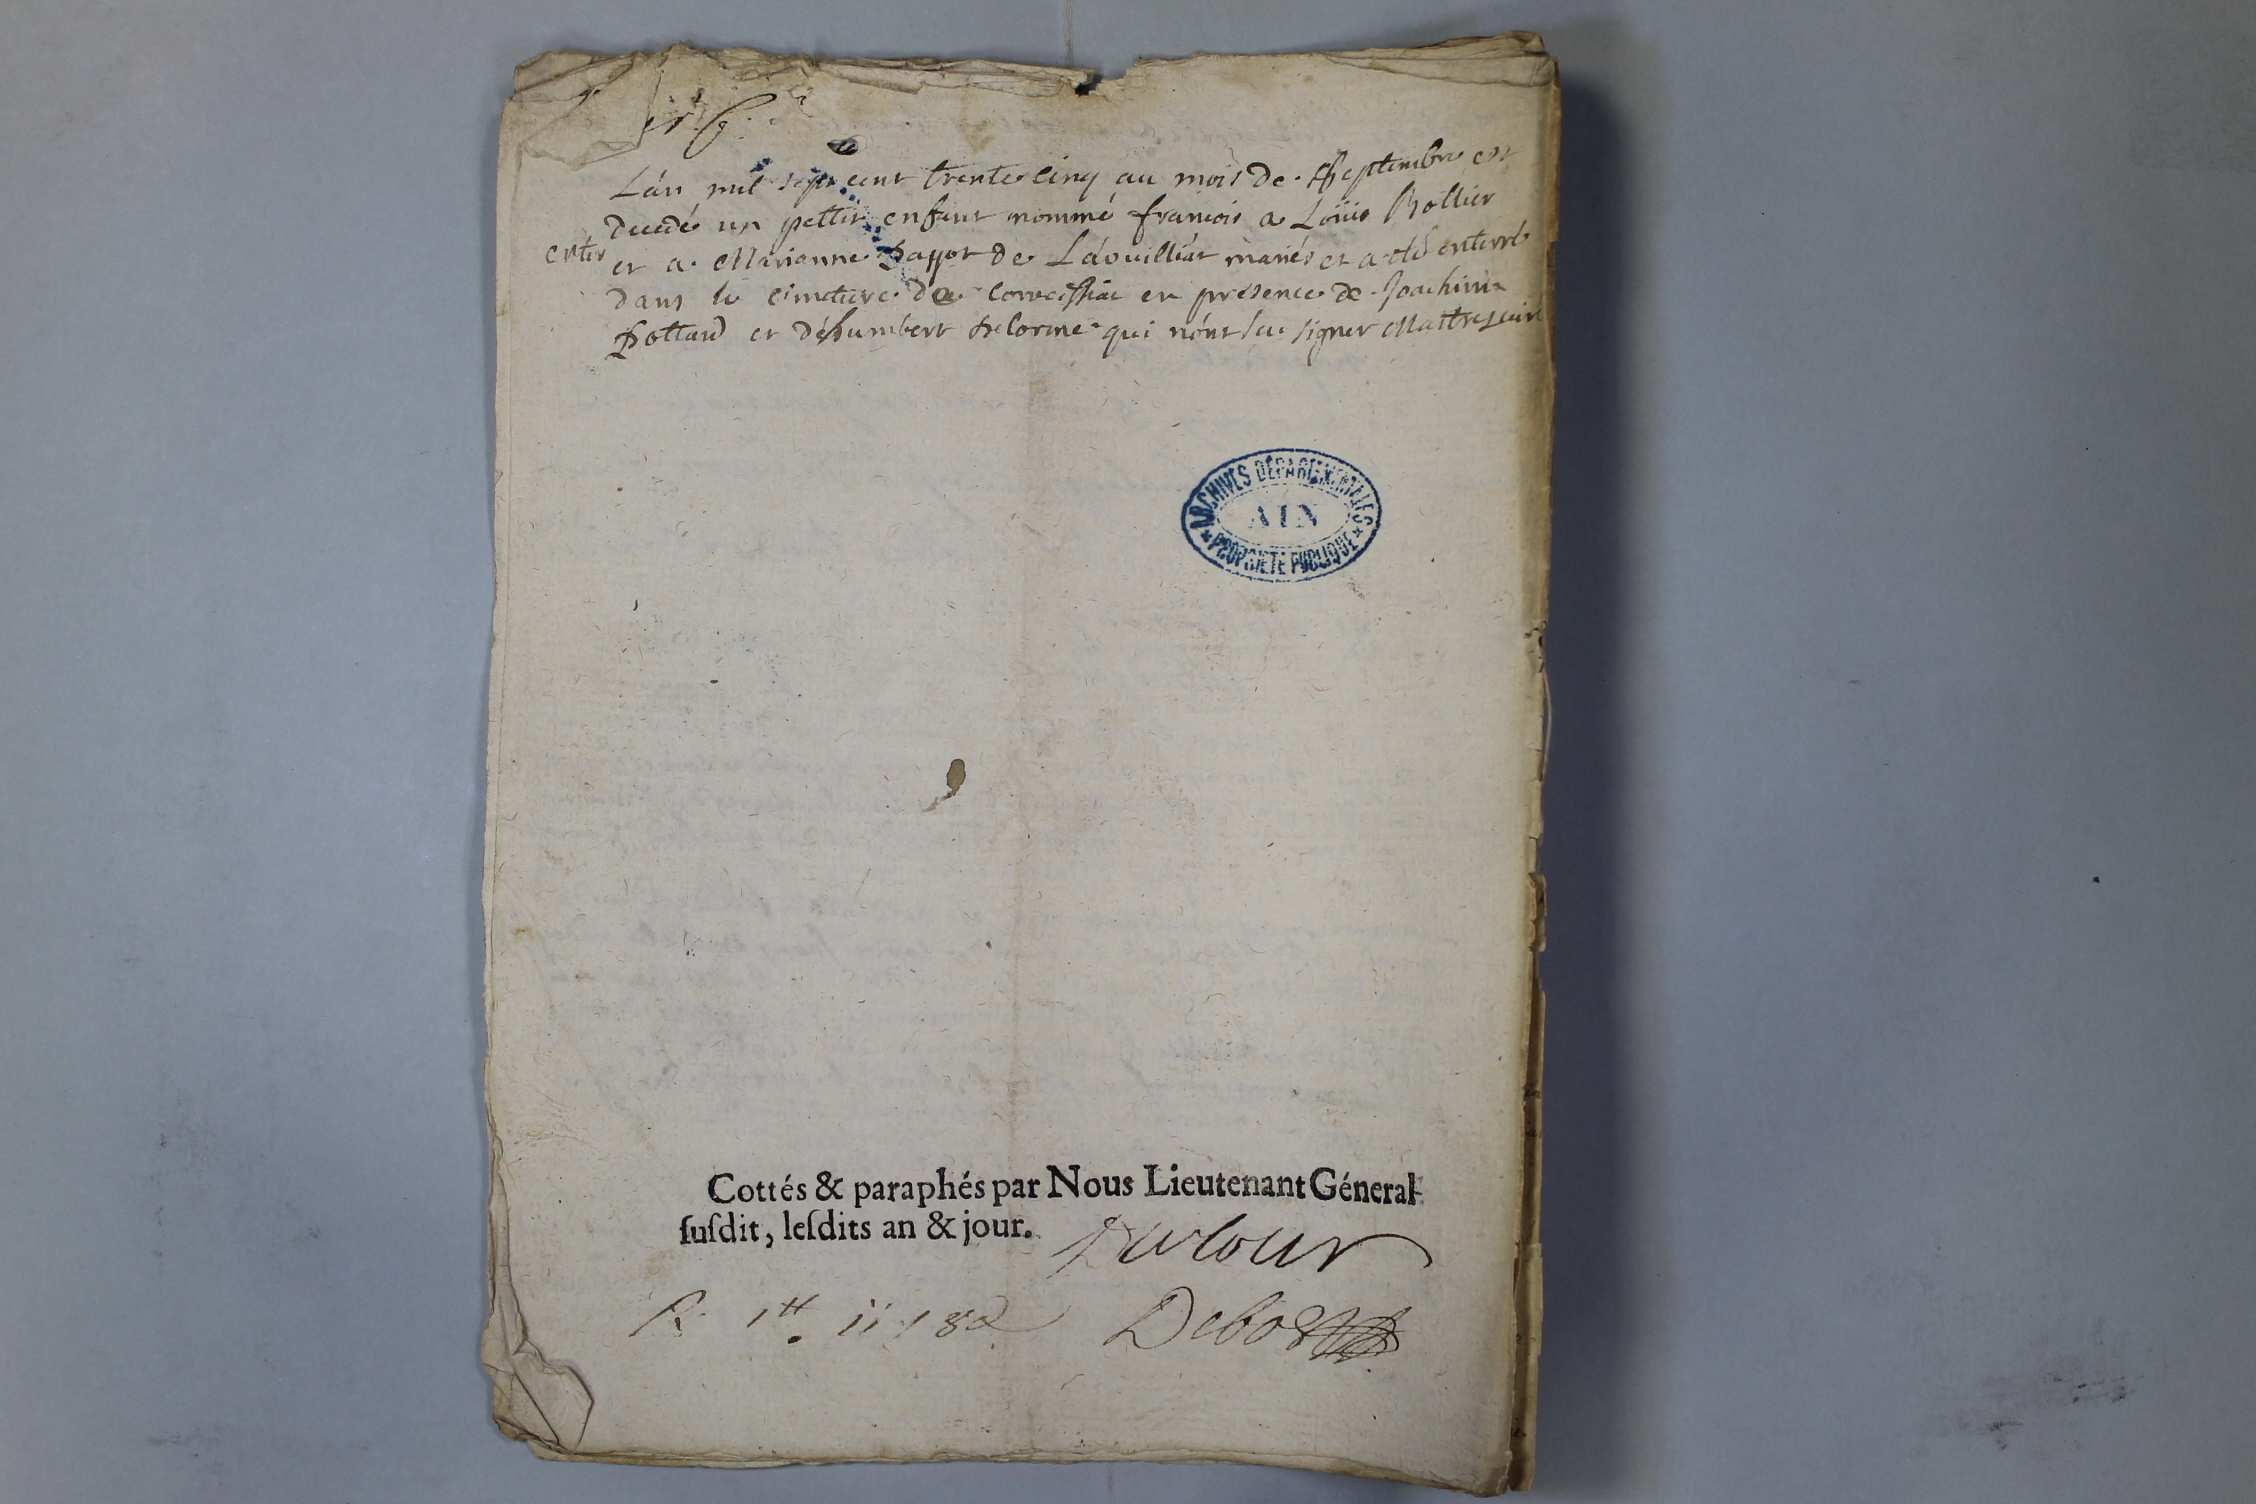 Lán mil sept cent trente cinq au mois de Septembre est
decedé un pettit enfant nommé francois a Loüis Rollier
enter et a Marianne Payot de Léouilliat mariés et a eté enterré
dans le cimetiere de Corveissiat en presence de Joachim
Pottard et déhumbert Delorme qui nónt su signer Maitre
ARCHIVES DÉPARTEMENTALES
AIN
* PROPRIÉTÉ PUBLIQUE *
Cottés & paraphés par Nous Lieutenant Géneral
ſuſdit, leſdits an & jour.